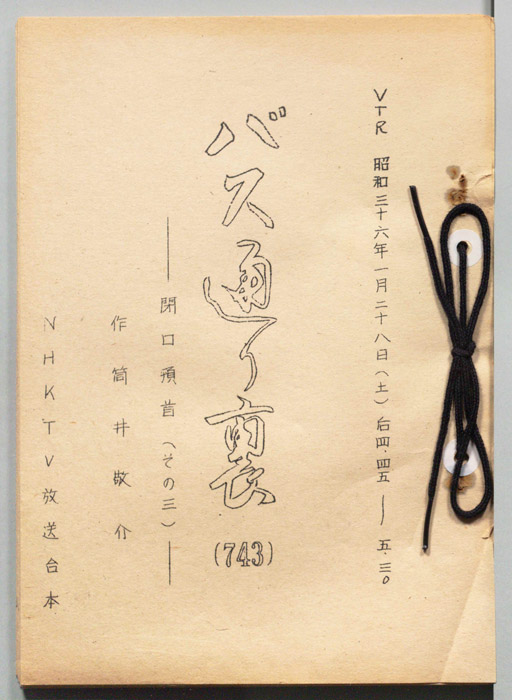 VTR 昭和三十六年一月二十八日（土）后四.四五―五.三〇
バス通り裏
(743)
―閉口頓首（その三）―
作 筒井敬介
NHKTV放送台本